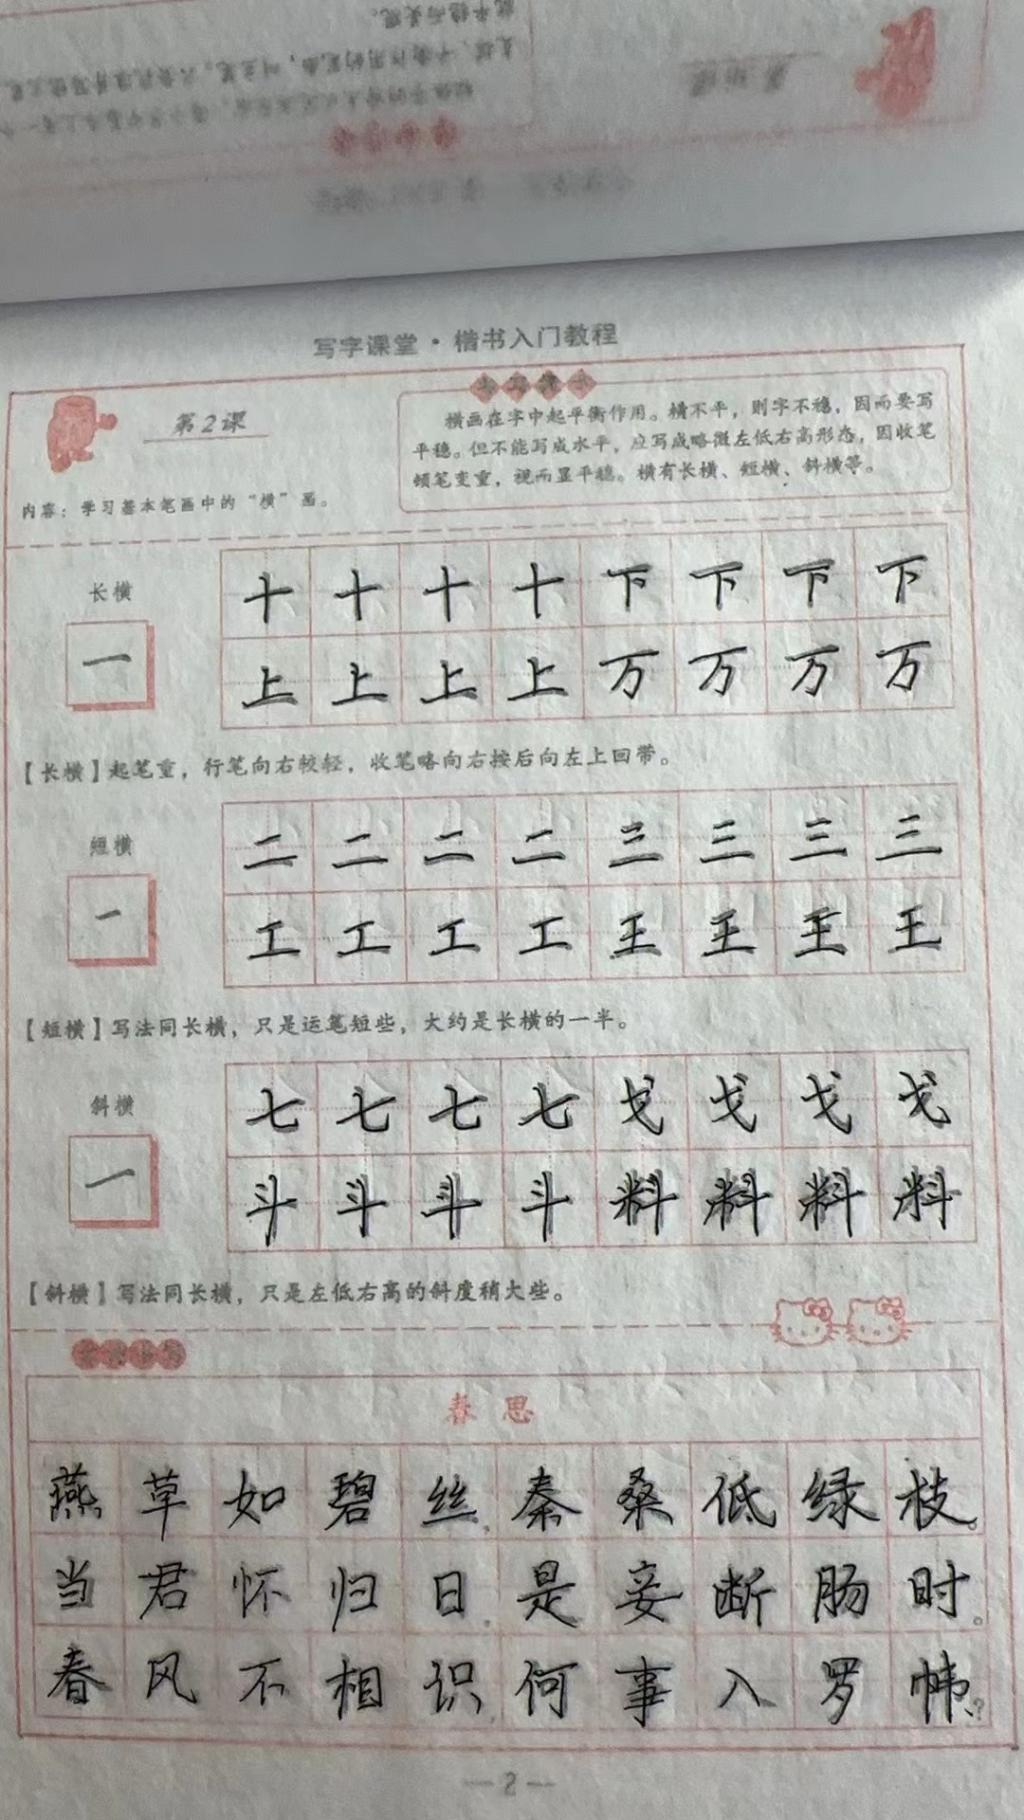 写字课堂·楷书入门教程
第2课
内容：学习基本笔画中的“横”画。
横画在字中起平衡作用。横不平，则字不稳，因而要写
平稳。但不能写成水平，应写成略微左低右高形态，因收笔
顿笔变重，视而显平稳。横有长横、短横、斜横等。
长横
一
十十十十下下下下
上上上上万万万万
【长横】起笔重，行笔向右较轻，收笔略向右按后向左上回带。
短横
一
二二二二三三三三
工工工工王王王王
【短横】写法同长横，只是运笔短些，大约是长横的一半。
斜横
一
七七七七戈戈戈戈
斗斗斗斗料料料料
【斜横】写法同长横，只是左低右高的斜度稍大些。
春思
燕草如碧丝，秦桑低绿枝。
当君怀归日，是妾断肠时。
春风不相识，何事入罗帏？
—2—